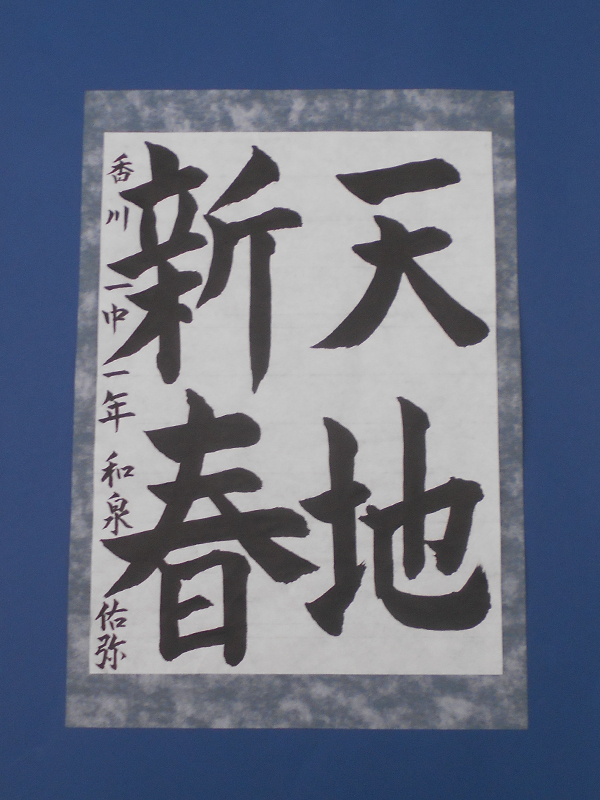 天地
新春
香川一中一年 和泉佑弥